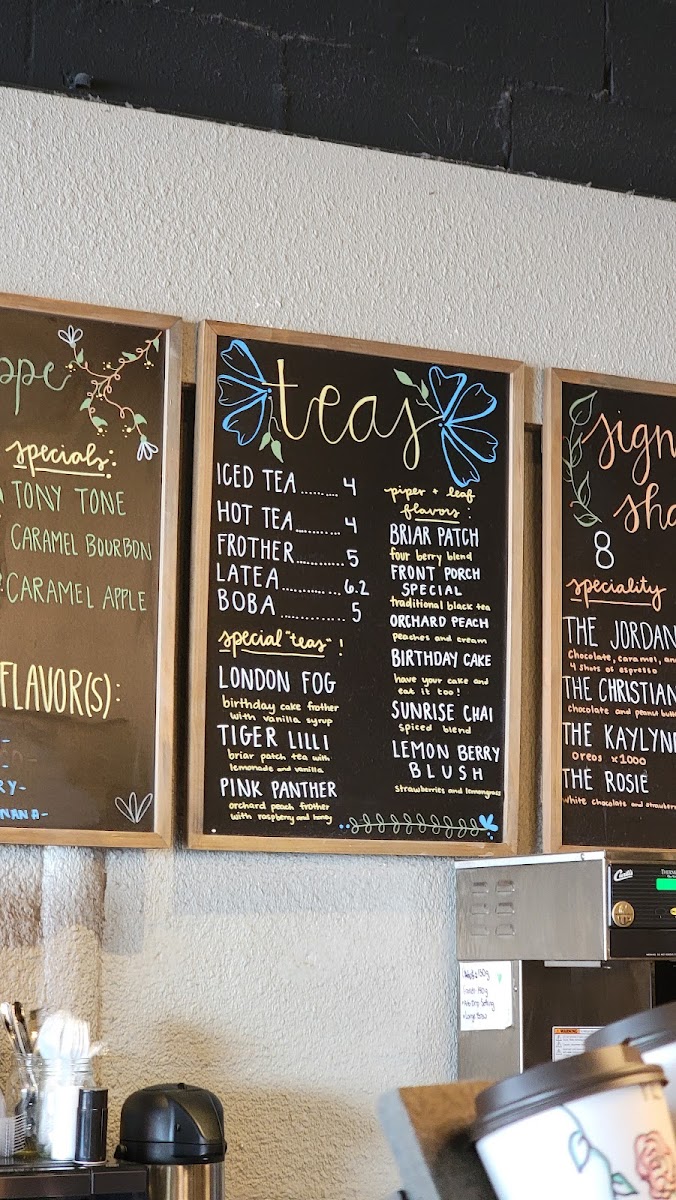 specials:
TONY TONE
CARAMEL BOURBON
CARAMEL APPLE
FLAVOR(S):
teas
ICED TEA ........ 4
HOT TEA .......... 4
FROTHER ............ 5
LATEA .............. 6.2
BOBA ............. 5
special "teas" !
LONDON FOG
birthday cake frother
with vanilla syrup
TIGER LILLI
briar patch tea with
lemonade and vanilla
PINK PANTHER
orchard peach frother
with raspberry and honey
piper + leaf
flavors:
BRIAR PATCH
four berry blend
FRONT PORCH
SPECIAL
traditional black tea
ORCHARD PEACH
peaches and cream
BIRTHDAY CAKE
have your cake and
eat it too!
SUNRISE CHAI
spiced blend
LEMON BERRY
BLUSH
strawberries and lemongrass
8
speciality
THE JORDAN
chocolate, caramel, an
4 shots of espresso
THE CHRISTIAN
chocolate and peanut
THE
oreos x1000
THE ROSIE
white chocolate and
Curtis
WARNING